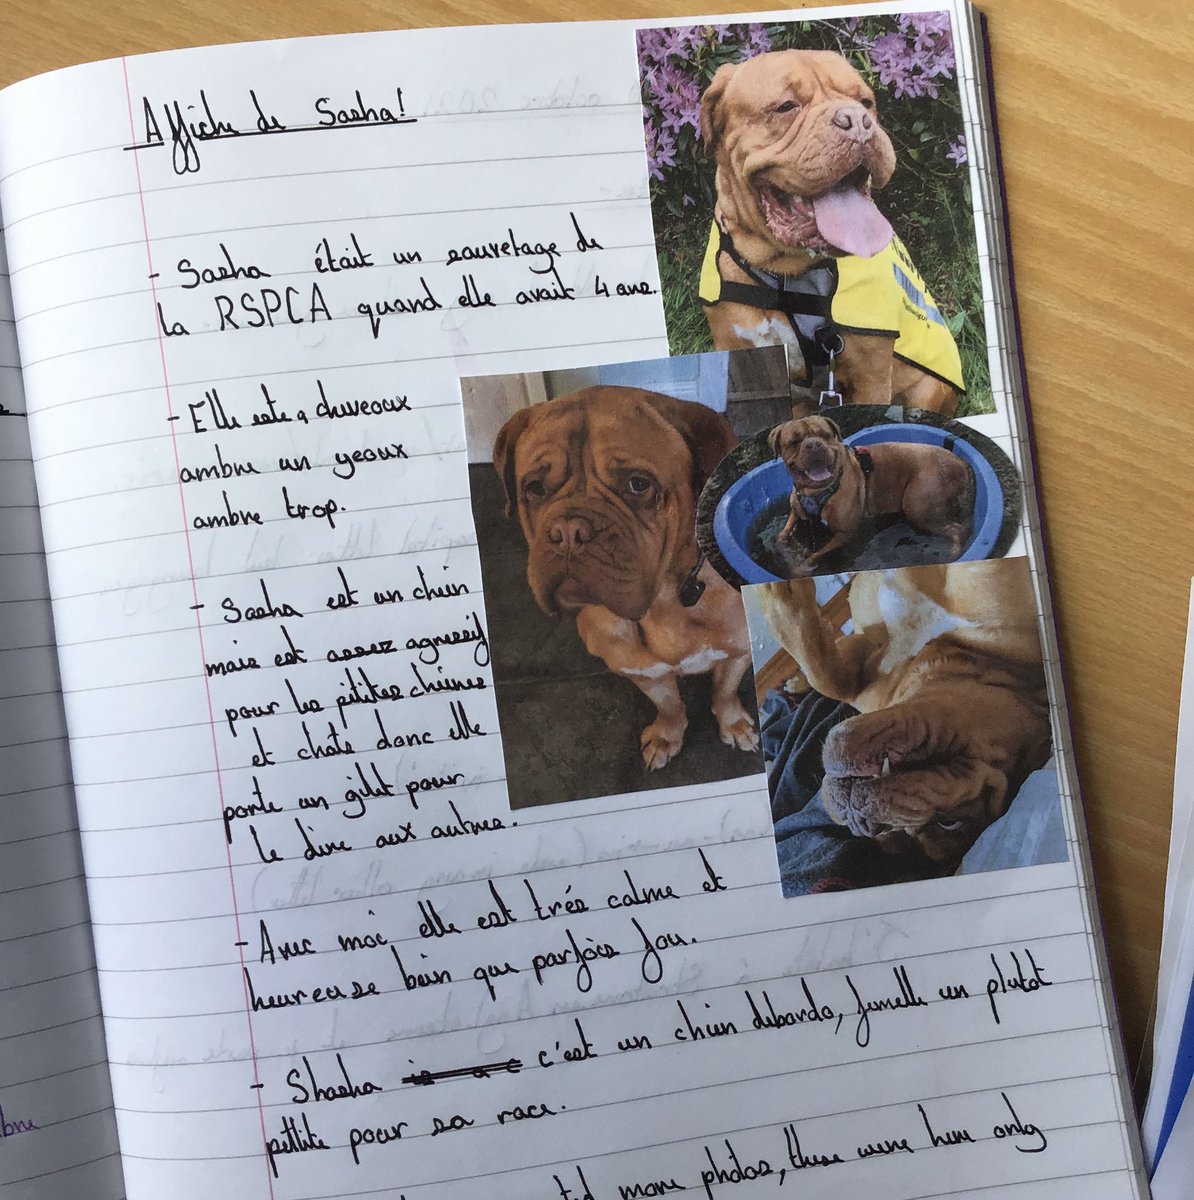 Affiche de Sasha!
- Sasha était un sauvetage de
la RSPCA quand elle avait 4 ans.
- Elle este a cheveoux
ambre un yeoux
ambre trop.
- Sasha est un chien
mais est assez agressif
pour les pitites chienes
et chats donc elle
porte un gilet pour
le dire aux autres.
- Avec moi elle est trés calme et
heureuse bein que parfois fou.
- Shasha is a c c'est un chien debordo, femelle un plutot
pittite pour sa race.
more photos, these were her only